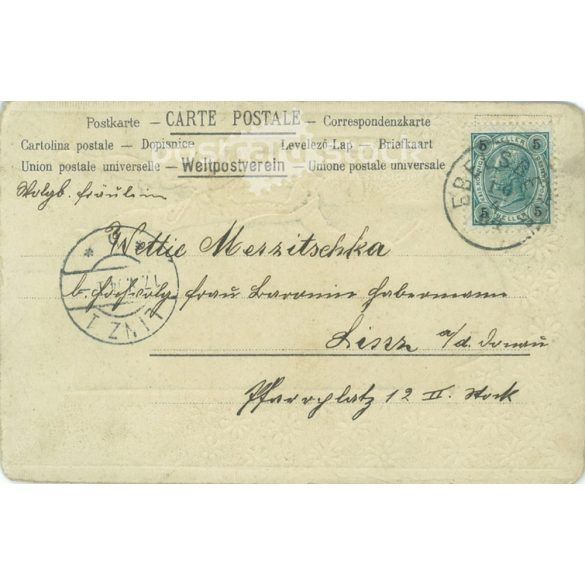 Postkarte – CARTE POSTALE – Correspondenzkarte
Cartolina postale – Dopisnice Levelező-Lap – Briefkaart
Union postale universelle – Weltpostverein – Unione postale universale
Wolgb. Fräulein
Nettie Merzitschka
b. Hochwolg. Frau Baronin Habermann
Linz a/d. Donau
Pfarrplatz 12 II. Stock
5 HELLER 5
5 HELLER 5
LINZ 1